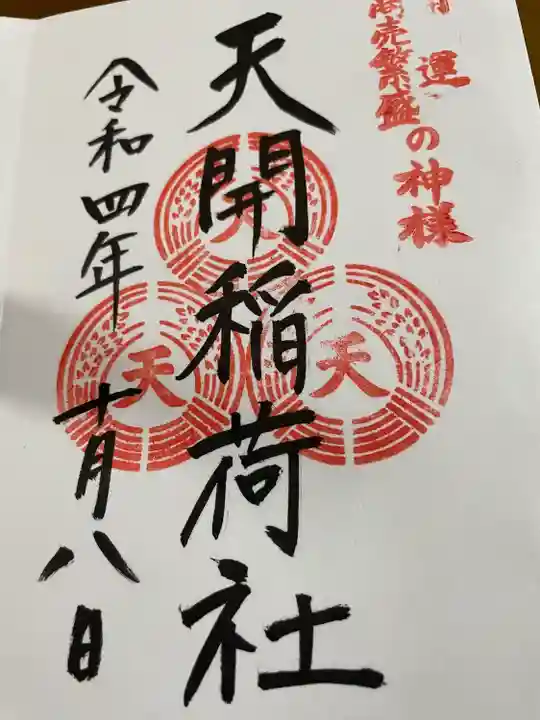 運
商売繁盛の神様
天開稲荷社
令和四年
十月八日
天
天
天